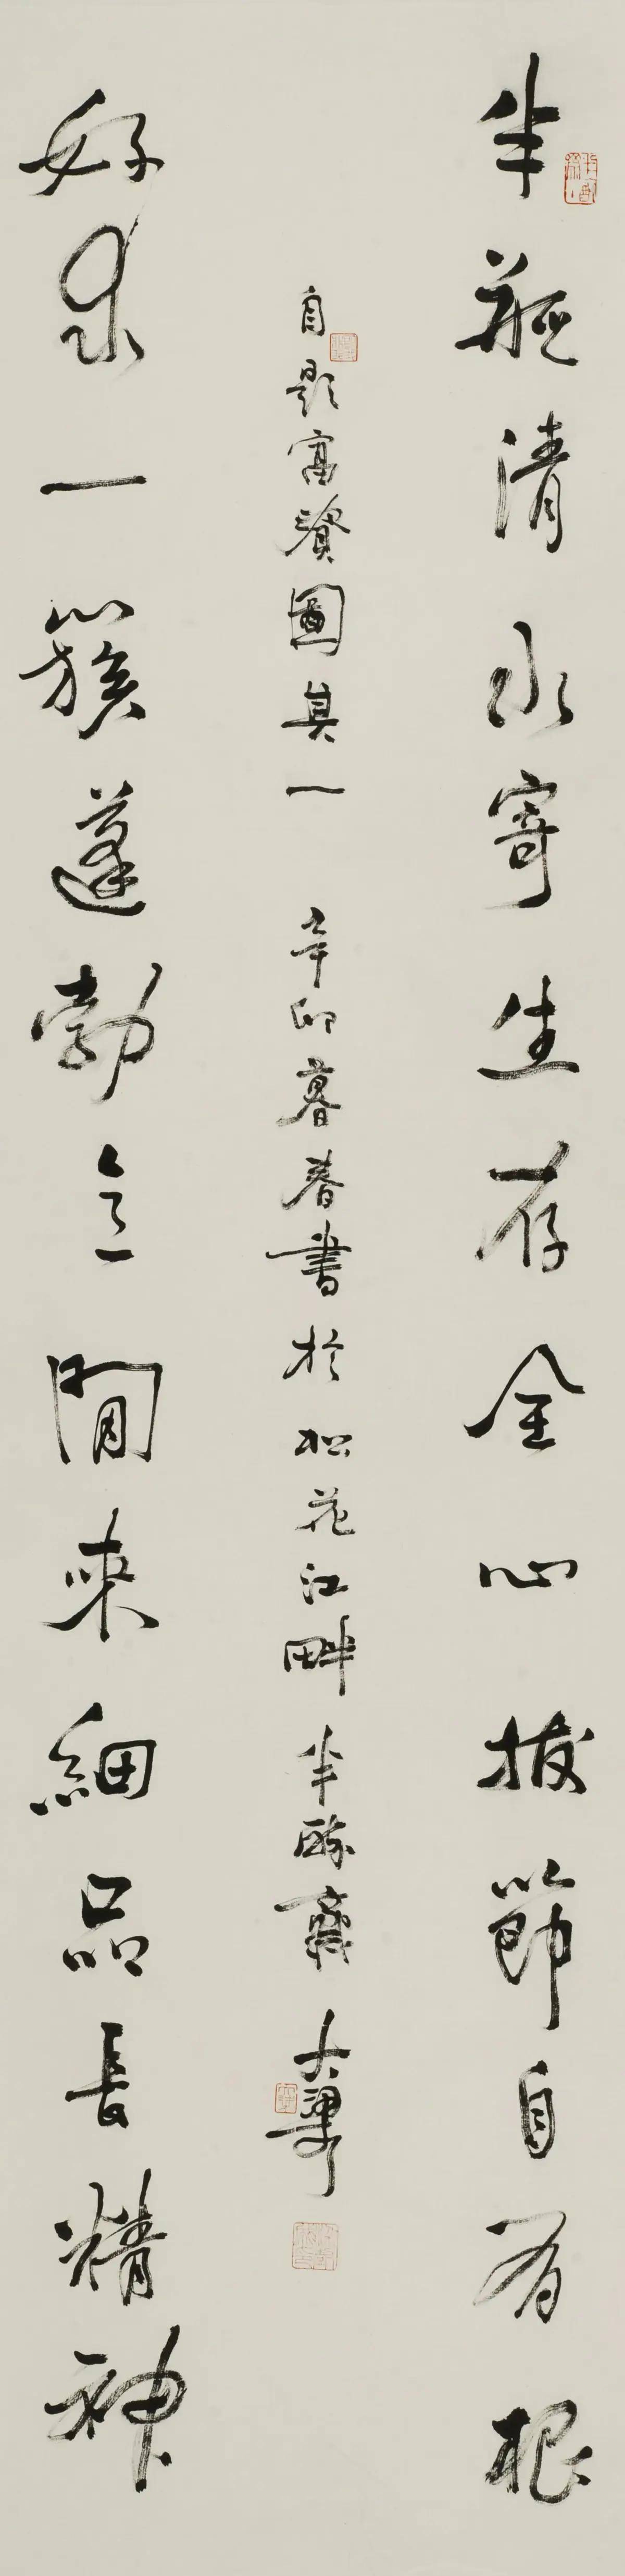 半瓶清水寄生存全心拔節自有根
好是一簇蓬勃意閒來細品長精神
自題富圖其一 辛卯暮春書於松花江畔半醉齋